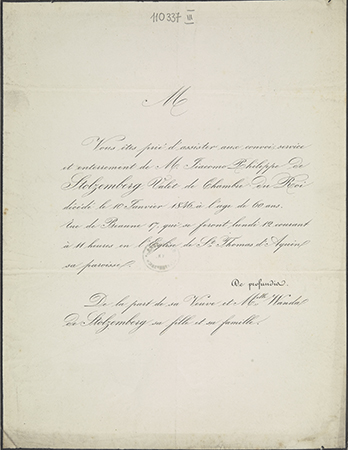 110337 III
M
Vous êtes prié d'assister aux convoi, service
et enterrement de M. Jiacomo-Philippe de
Stolzemberg Valet de Chambre du Roi
décédé le 10 Janvier 1846 à l'âge de 60 ans.
Rue de Beaune 17, qui se feront lundi 12 courant
à 11 heures en l'Eglise de St. Thomas d'Aquin
sa paroisse.
De profundis.
De la part de sa Veuve et Melle Wanda
de Stolzemberg sa fille et sa famille.